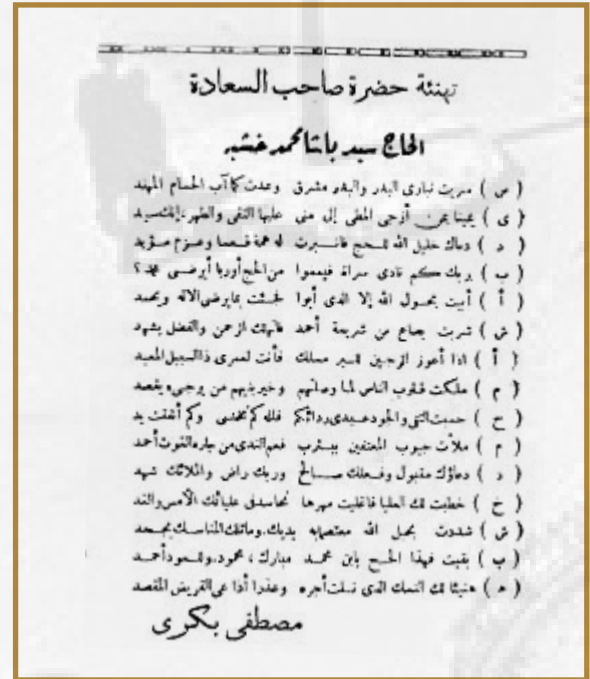 تهنئة حضرة صاحب السعادة
الحاج سيد باشا محمد خشبه
( س ) سريت تبارى البدر والبدر مشرق وعدت كما آب الحسام المهند
( ى ) يمينا بمن أزجى المطى إلى منى عليها التقى والطهر، إنك سيد
( د ) دعاك خليل الله للحج فانبرت له همة قعسا وعزم مؤيد
( ب ) بربك كم نادى سراة فيمموا من الحج أوربا أيرضى محمد؟
( أ ) أبيت بحول الله إلا الذى أبوا لجئت بما يرضى الاله ويحمد
( ش ) شربت جماع من شريعة أحمد فالهك الرحمن والفضل يشهد
( أ ) اذا أعوز الراجين للسير مسلك فأنت لعمرى ذا السبيل المعبد
( م ) ملكت قلوب الناس لما وصلتهم وخير بنيهم من يرجى ويقصد
( ح ) حسبت التقى والجود عبدى ردائكم فلله كم تخشى وكم أنفقت يد
( م ) ملأت جيوب المعتفين بيثرب فعم الندى من جاره الغوث أحمد
( د ) دعاؤك مقبول وفعلك صالح وربك راض والملائك شهد
( خ ) خطبت لك العليا فاغليت مهرها تحاسدنى عليائك الأمس والغد
( ش ) شددت بحبل الله معتصما به يديك. وماتلك المناسك تجحد
( ب ) بقيت فهذا الحج يابن محمد مبارك، محمود. وللعود أحمد
( ه ) هنيئا لك النسك الذى نلت أجره وعذرا أذا عى القريض المقصد
مصطفى بكرى